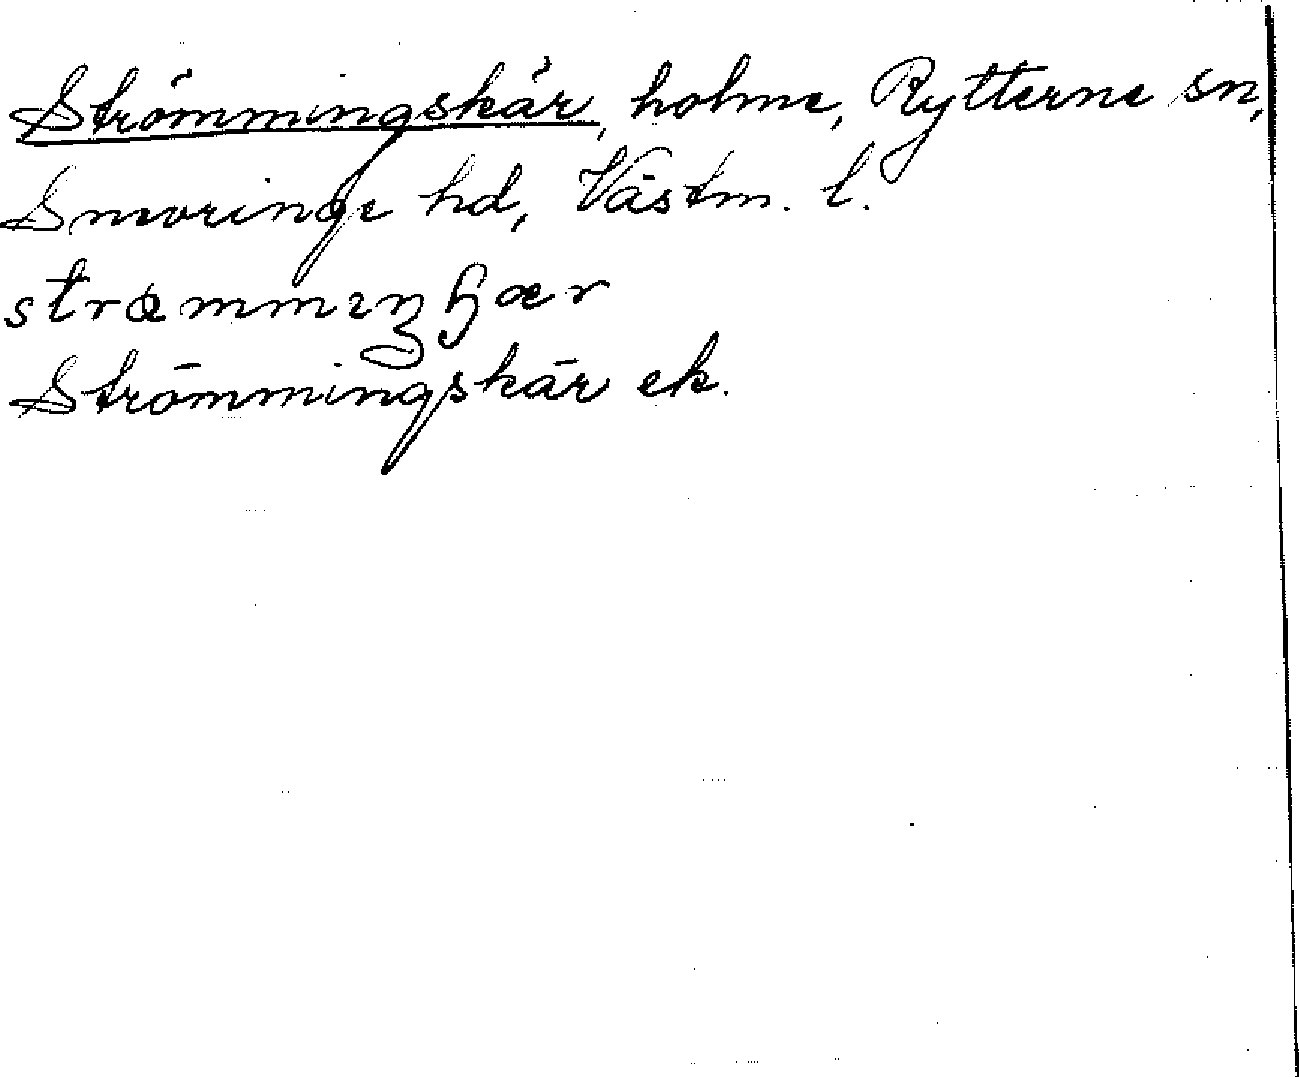 Strömmingskär, holme, Rytterne sn,
Snevringe hd, Västm. l.
Strömmingskär ek.